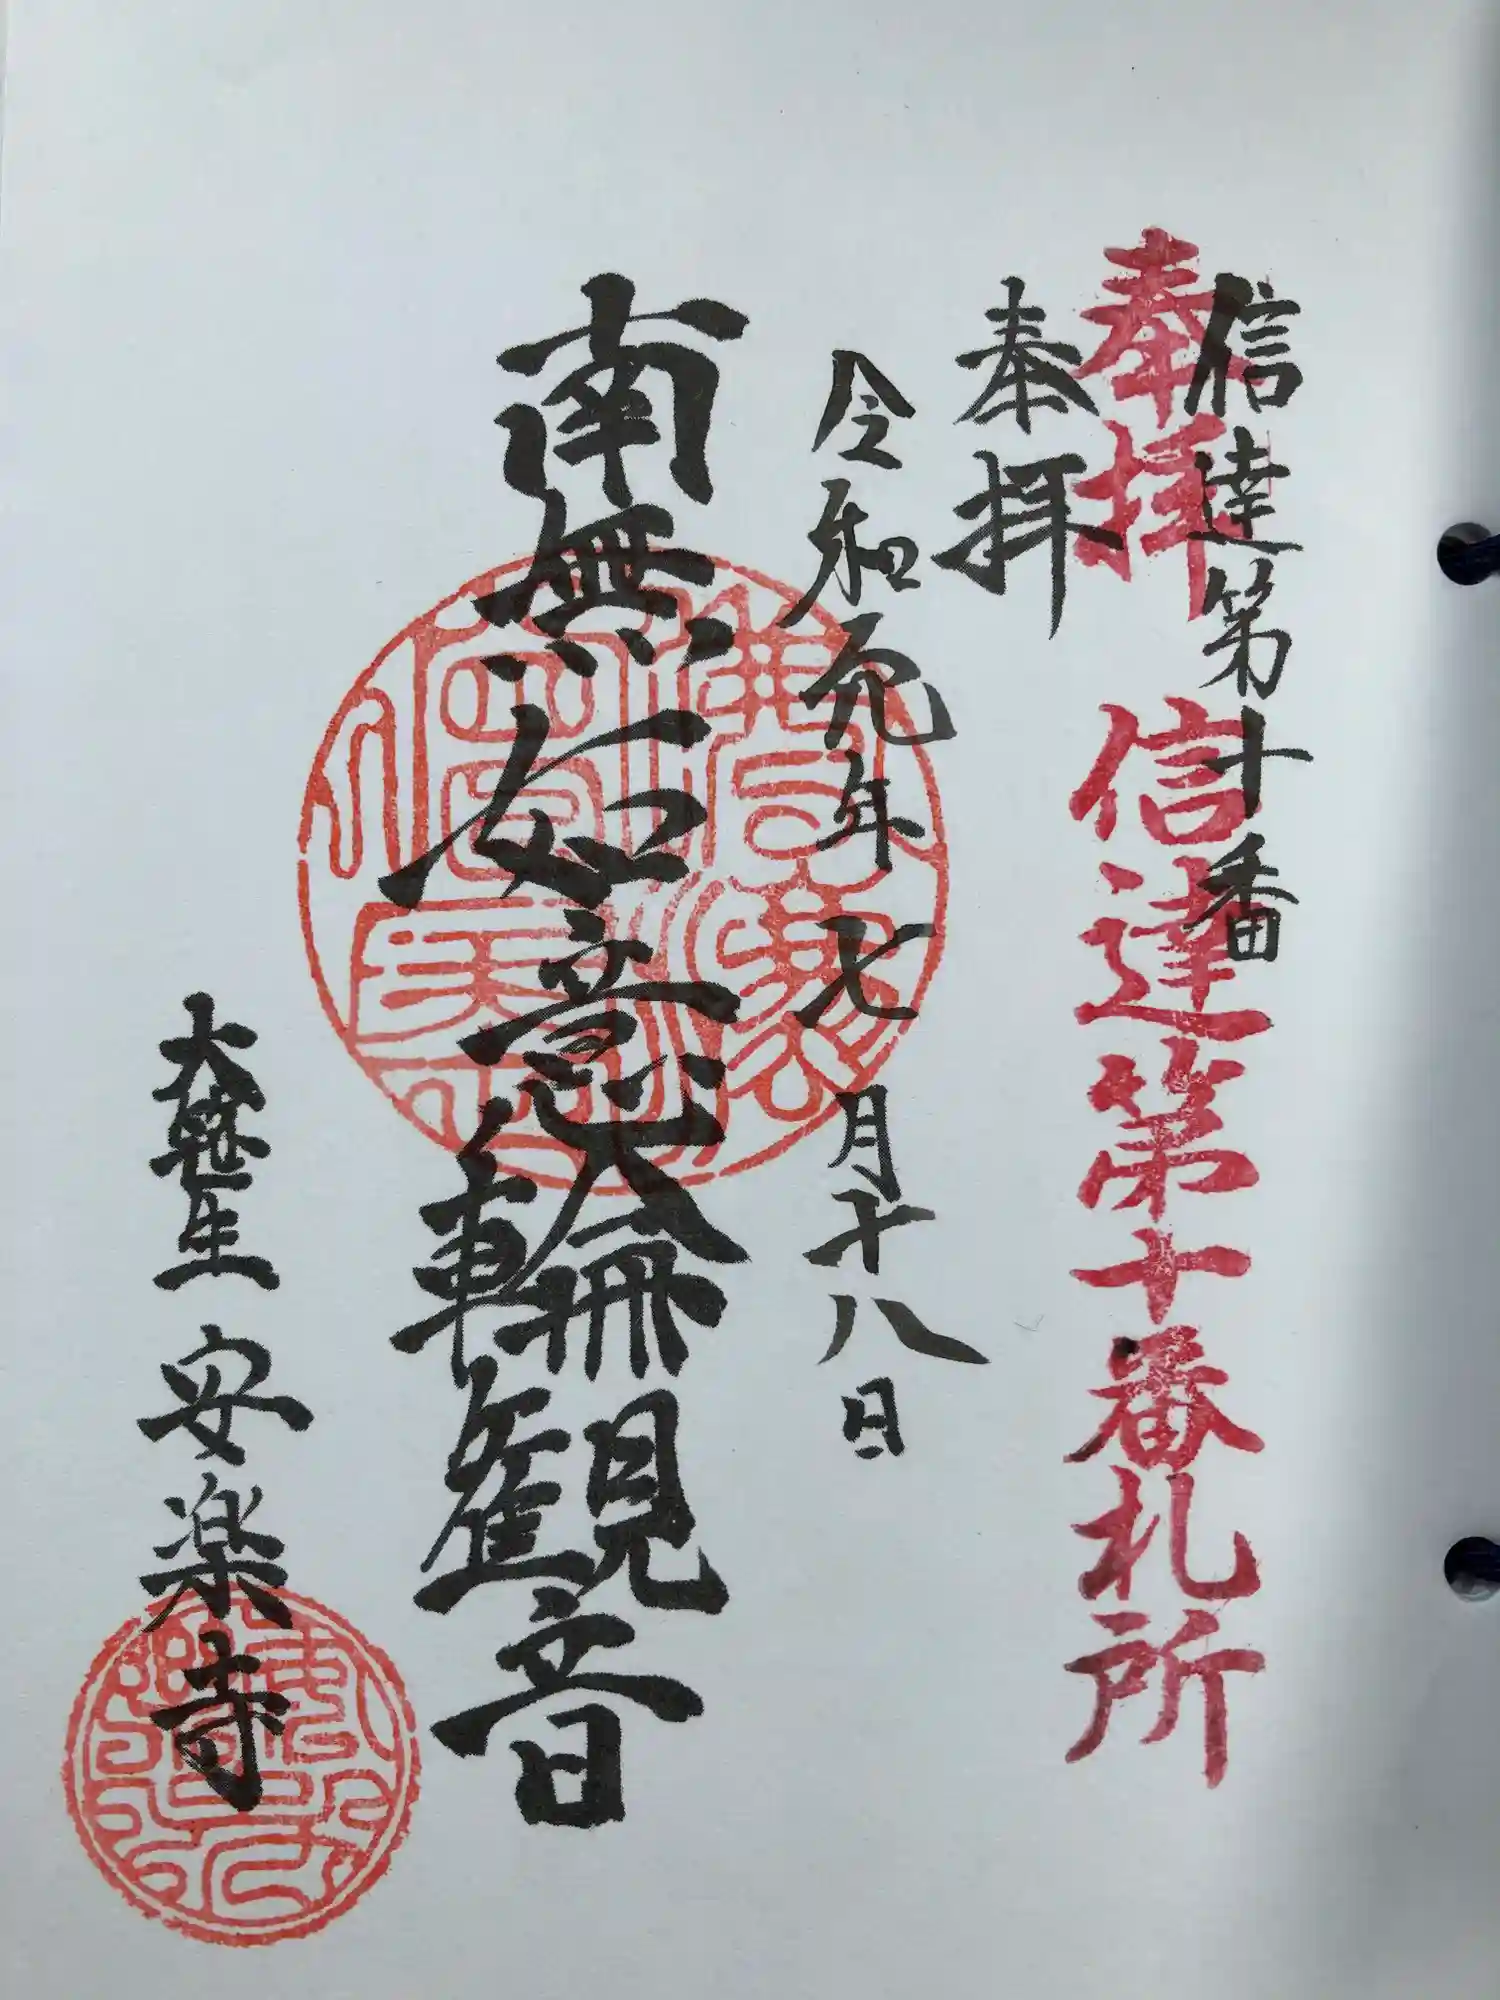 信達第十番
奉拝 信達第十番札所
奉拝
令和元年七月十八日
南無如意輪観音
大笹生 安楽寺